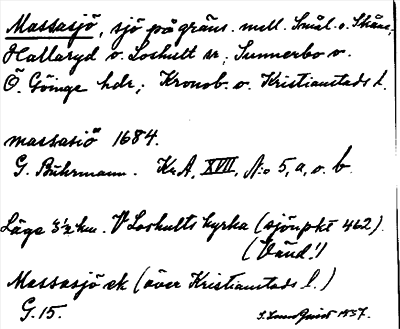 Massasjö, sjö på gräns. mell. Smål. o. Skåne,
Hallaryd o. Loshult sr, Sunnerbo o.
Ö. Göinge hdr; Kronob. o. Kristianstads l.
massasiö 1684.
G. Buhrmann. Kr.A, XVII, N:o 5, a, o. b.
Läge 3½ km. V Loshults kyrka (sjönpkt 462).
(Vänd!)
Massasjö ek (över Kristianstads l.)
G. 15.
1937.